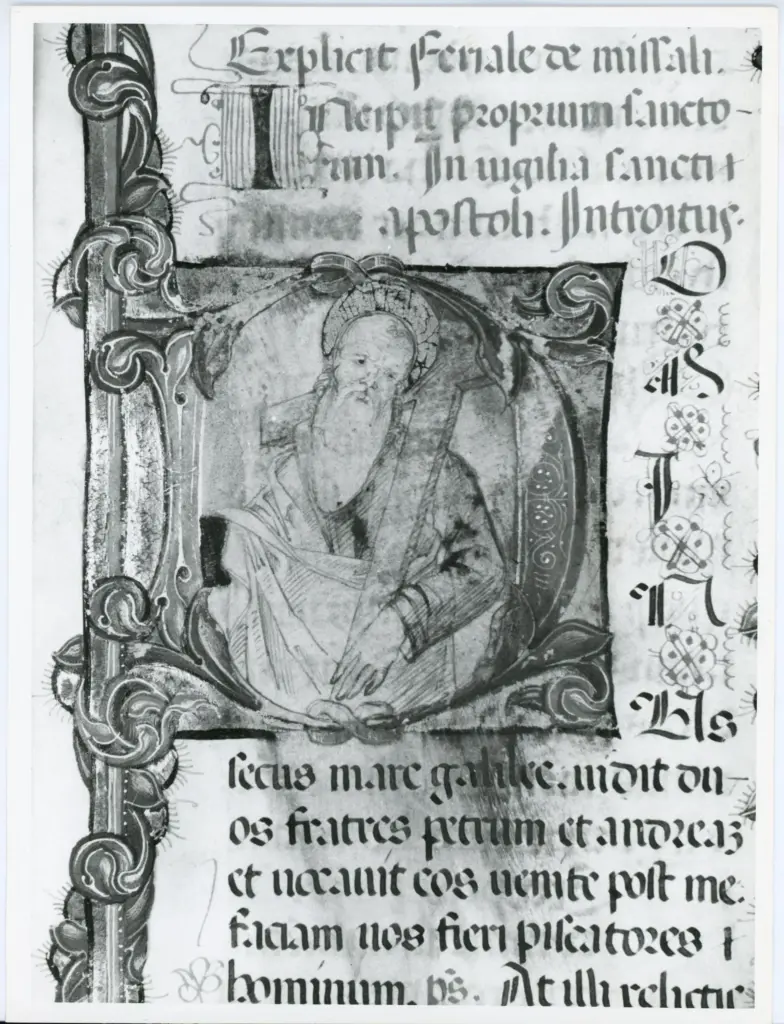 Explicit feriale de missali.
Incipit proprium sancto
rum. In uigilia sancti
apostoli. Introitus.
D
N
S
I
N
Us
secus mare galilee. uidit du
os fratres petrum et andreaz
et uocauit eos uenite post me.
faciam uos fieri piscatores
hominum. ps. At illi relictis